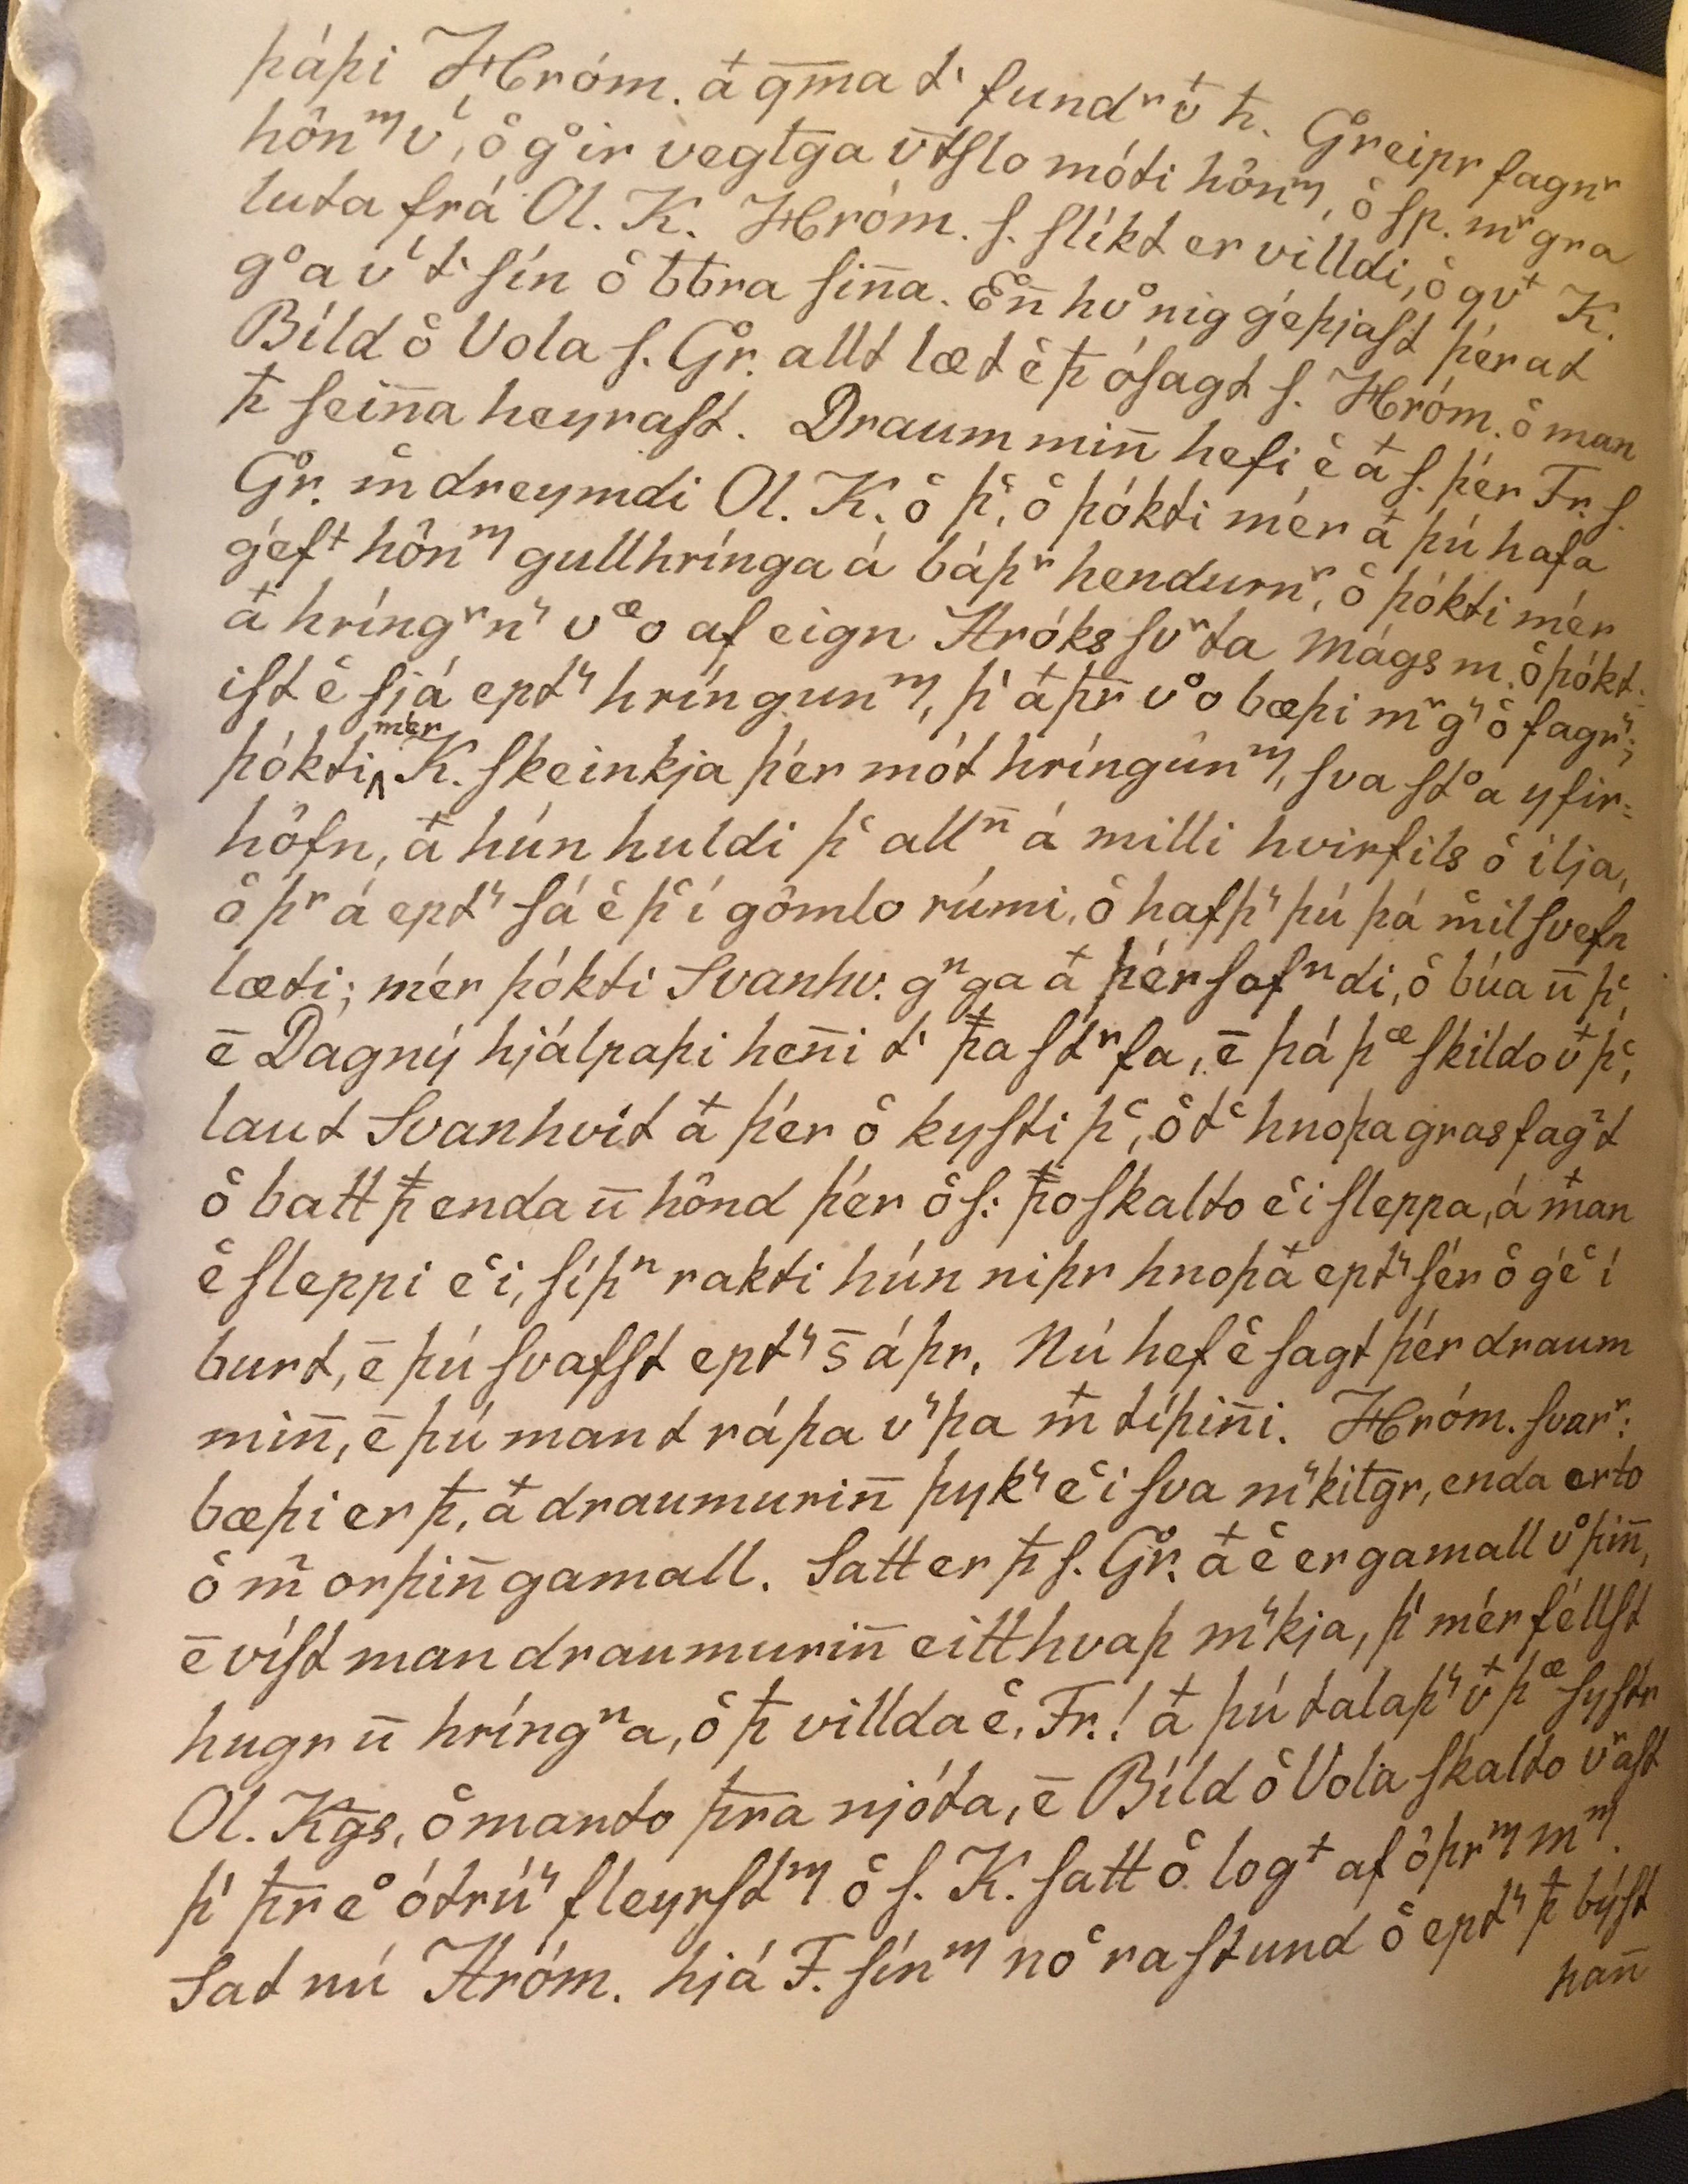 þáþi Hróm. a᷵ qm̅a tͥ fundʳ v᷵ ħ. Gͦreipr fagnʳ
hônᵐ vͥ, ô gͦir vegl̅ga v̅tſlo móti hônᵐ, ô ſp. mʳgra
luta frá Ol. K. Hróm. ſ. ſlíkt er villdi, ô qvᵗ K.
gͦa vͥ tͥ ſín ô ƀƀra ſin̅a. En̅ hvͦnig géþjaſt þér at
Bíld ô Vola ſ. Gͦr. allt læt ê ꝥ óſagt ſ. Hróm. ô man
ꝥ ſein̅a heyraſt. Draum min̅ hefi ê a᷵ ſ. þér Fr. ſ.
Gͦr. m̂ dreymdi Ol. K. ô þͨ, ô þókti mér a᷵ þú hafa
géfᵗ hônᵐ gullhrínga á báþʳ hendurnʳ, ô þókti mér
a᷵ hríngʳnʳ vᵉo af eign Hróks ſvʳta Mágs m. ô þókt-
iſt ê ſjá eptʳ hríngunᵐ, þͥ a᷵ þr̅ vͦo bæþi mʳgʳ ô fagrʳ;
þókti mér K. ſkeinkja þér mót hríngûnᵐ, ſva ſtͦa yfir-
hôfn, a᷵ hún huldi þͨ allⁿ á milli hvirfils ô ilja,
ô þʳ á eptʳ ſá ê þͨ í gômlo rúmi, ô hafþʳ þú þá m̂ilſvefn
læti; mér þókti Svanhv. gⁿga a᷵ þér ſofⁿdi, ô búa u̅ þͨ,
e̅ Dagný hjálpaþi hen̅i tͥ ꝥa ſtʳfa, e̅ þá þᵉ ſkildo v᷵ þͨ,
laut Svanhvít a᷵ þér ô kyſti þͨ, ô tͨ hnoþa grasfagᵗt
ô batt ꝥ enda u̅ hônd þér ô ſ: ꝥo ſkalto êi ſleppa, á m᷵an
ê ſleppi êi, ſíþⁿ rakti hún niþr hnoþa᷵ eptʳ ſér ô gêͨ í
burt, e̅ þú ſvafſt eptʳ s̅ áþr. Nú hef ê ſagt þér draum
min̅, e̅ þú mant ráþa vʳþa m᷵ tíþin̅i. Hróm. ſvarʳ:
bæþi er ꝥ, a᷵ draumurin̅ þykʳ êi ſva mʳkil̅gr, enda erto
ô m̃ orþin̅ gamall. Satt er ꝥ ſ. Gͦr. a᷵ ê er gamall vͦþin̅,
e̅ víſt man draumurin̅ eitthvaþ mʳkja, þͥ mér féllſt
hugr u̅ hríngⁿa, ô ꝥ villda ê, Fr.! a᷵ þú talaþʳ v᷵ þᵉ ſyſtr
Ol. Kg̅s, ô manto þr̅a njóta, e̅ Bíld ô Vola ſkalto vʳaſt
þͥ þr̅ eͦ ótrúʳ fleyrſtᵐ ô ſ. K. ſatt ô logᵗ af ôþrᵐ mᵐ.
Sat nú Hróm. hjá F. ſínᵐ nôͨra ſtund ô eptʳ ꝥ býſt
han̅